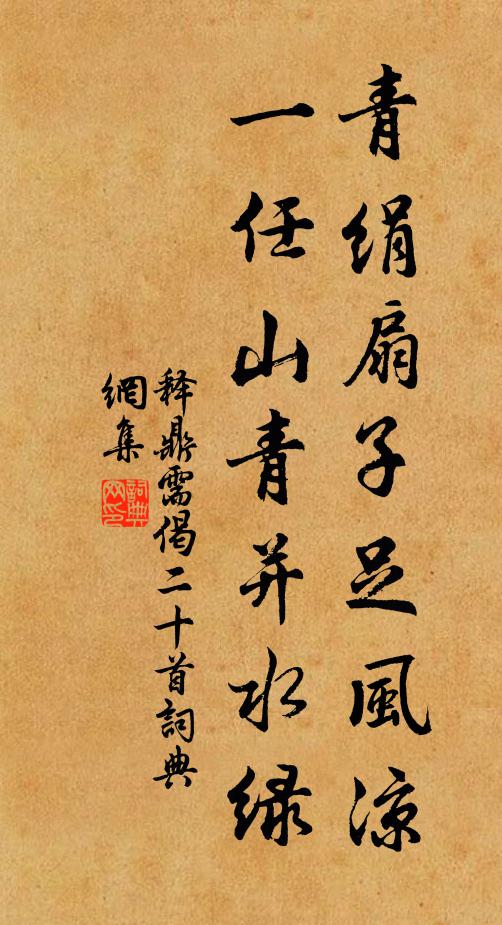 青絹扇子足風涼
一任山青并水緑
釋鼎需偈二十首詞典
網集
詞典
网印